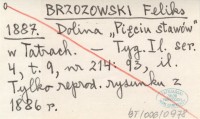 BRZOZOWSKI Feliks
1887. Dolina „Pięciu stawów"
w Tatrach. – Tyg. Il. ser.
4, t. 9, nr 214: 93, il.
Tylko reprod. rysunku z
1886 r.